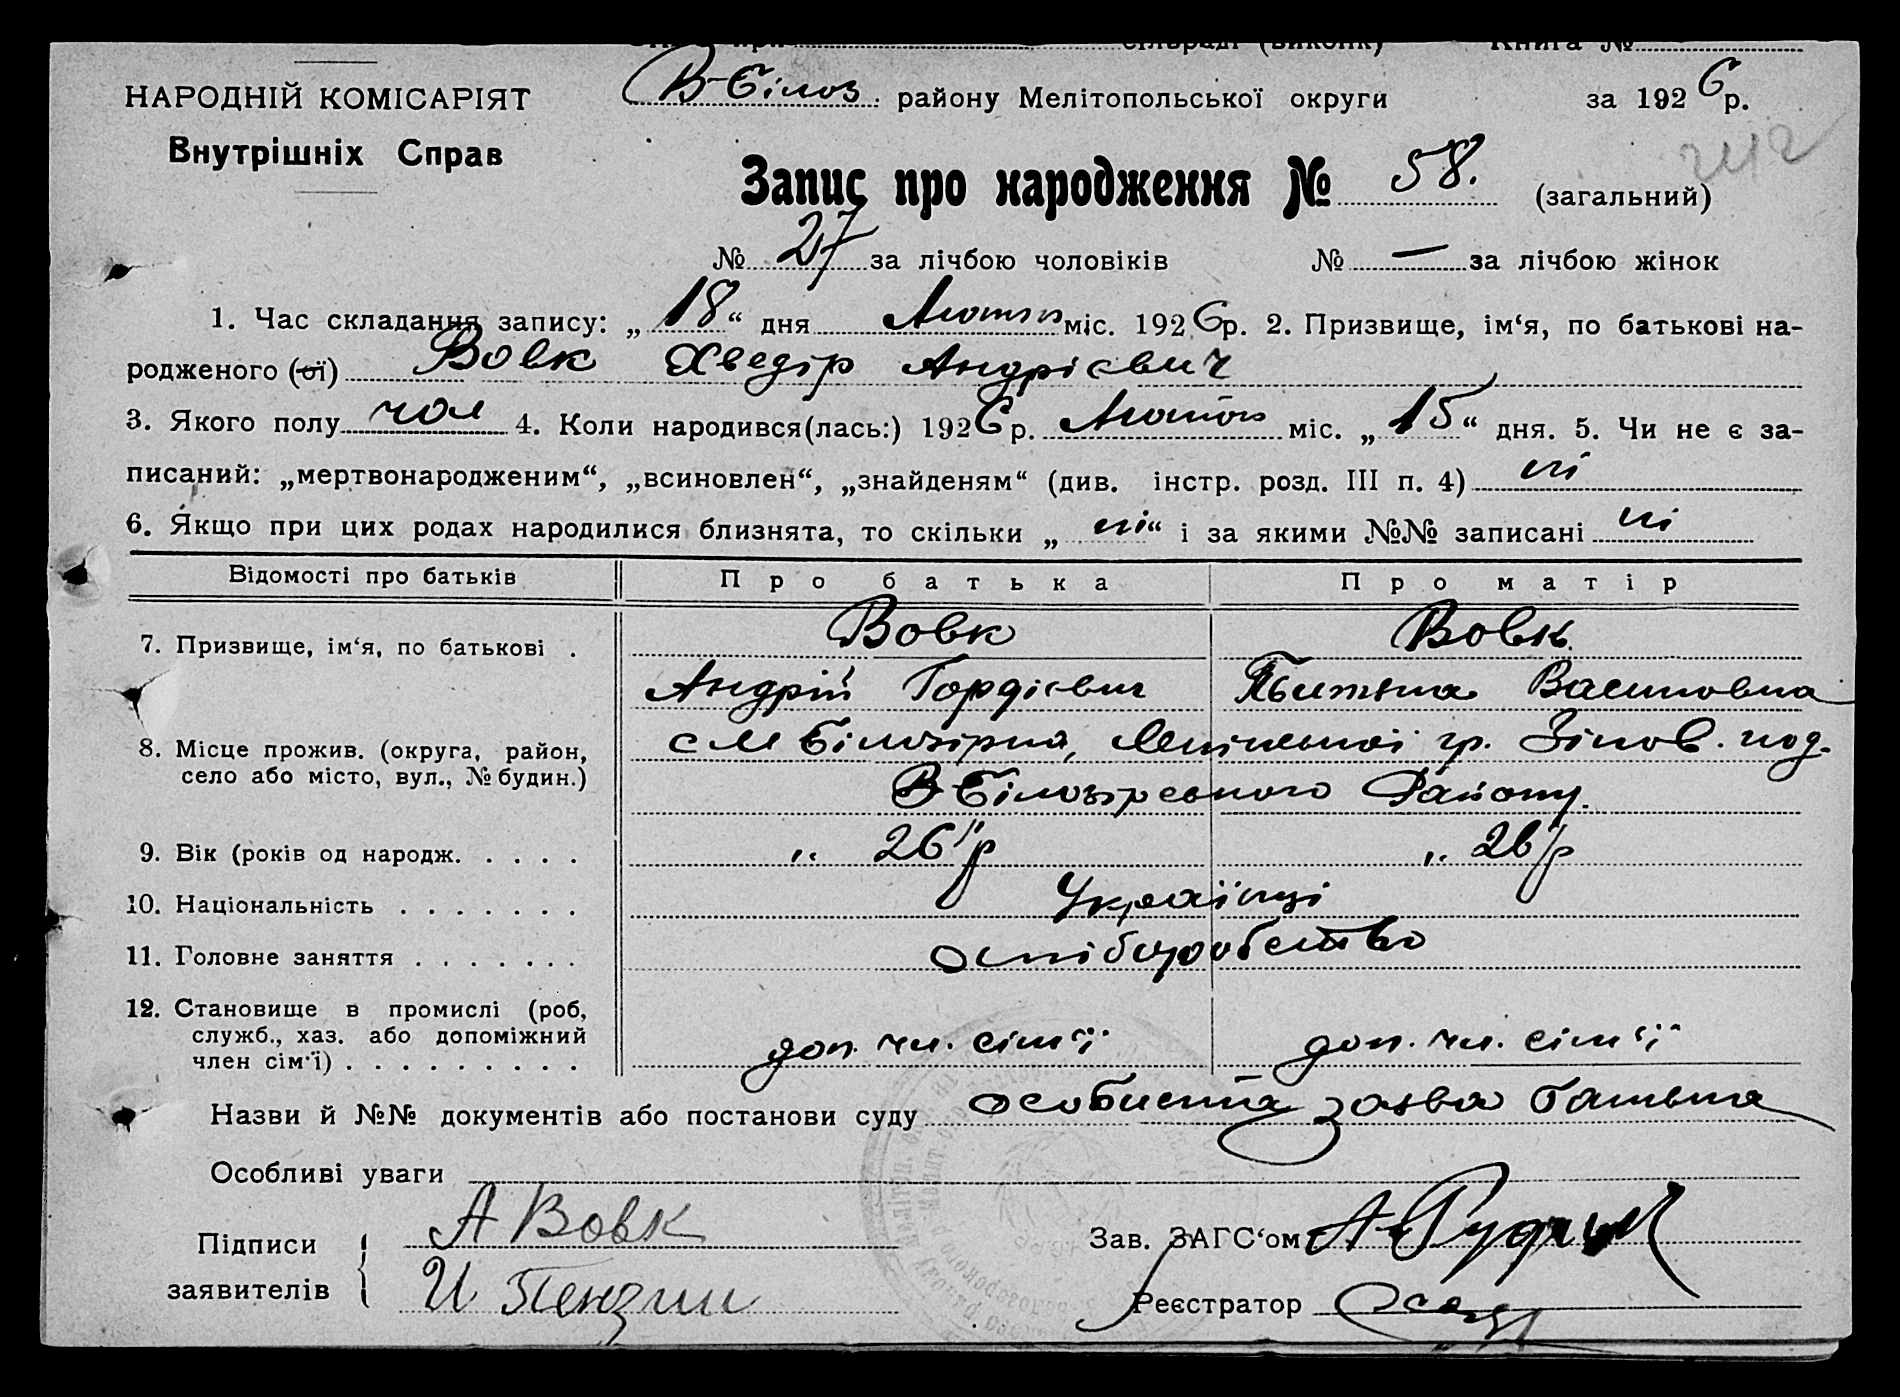 НАРОДНІЙ КОМІСАРІЯТ
Внутрішніх Справ
В-Білоз. району Мелітопольської округи за 1926р.
Запис про народження № 58. (загальний)
№ 27 за лічбою чоловіків № — за лічбою жінок
1. Час складання запису: „18“ дня Лютого міс. 1926р. 2. Призвище, ім‘я, по батькові на-
родженого (ої) Вовк Хведір Андрієвич
3. Якого полу чол 4. Коли народився(лась:) 1926р. Лютого міс. „15“ дня. 5. Чи не є за-
писаний: „мертвонародженим“, „всиновлен“, „знайденям“ (див. інстр. розд. III п. 4) ні
6. Якщо при цих родах народилися близнята, то скільки „ні“ і за якими №№ записані ні
Відомості про батьків Про батька Про матір
7. Призвище, ім‘я, по батькові . Вовк Вовк
Андрій Гордієвич Василовна
8. Місце прожив. (округа, район, с М Білозірка, гр. Зінов. под.
село або місто, вул., № будин.) В-Білозірського Району.
9. Вік (років од народж. . . . . „ 26 р „ 26 р
10. Національність . . . . . . . Українці
11. Головне заняття . . . . . . .
12. Становище в промислі (роб,
служб., хаз. або допоміжний
член сім‘ї) . . . . . . . . . доп. чл. сім‘ї доп. чл. сім‘ї
Назви й №№ документів або постанови суду особиста заява батька
Особливі уваги
Підписи А Вовк Зав. ЗАГС‘ом
заявителів И Реєстратор